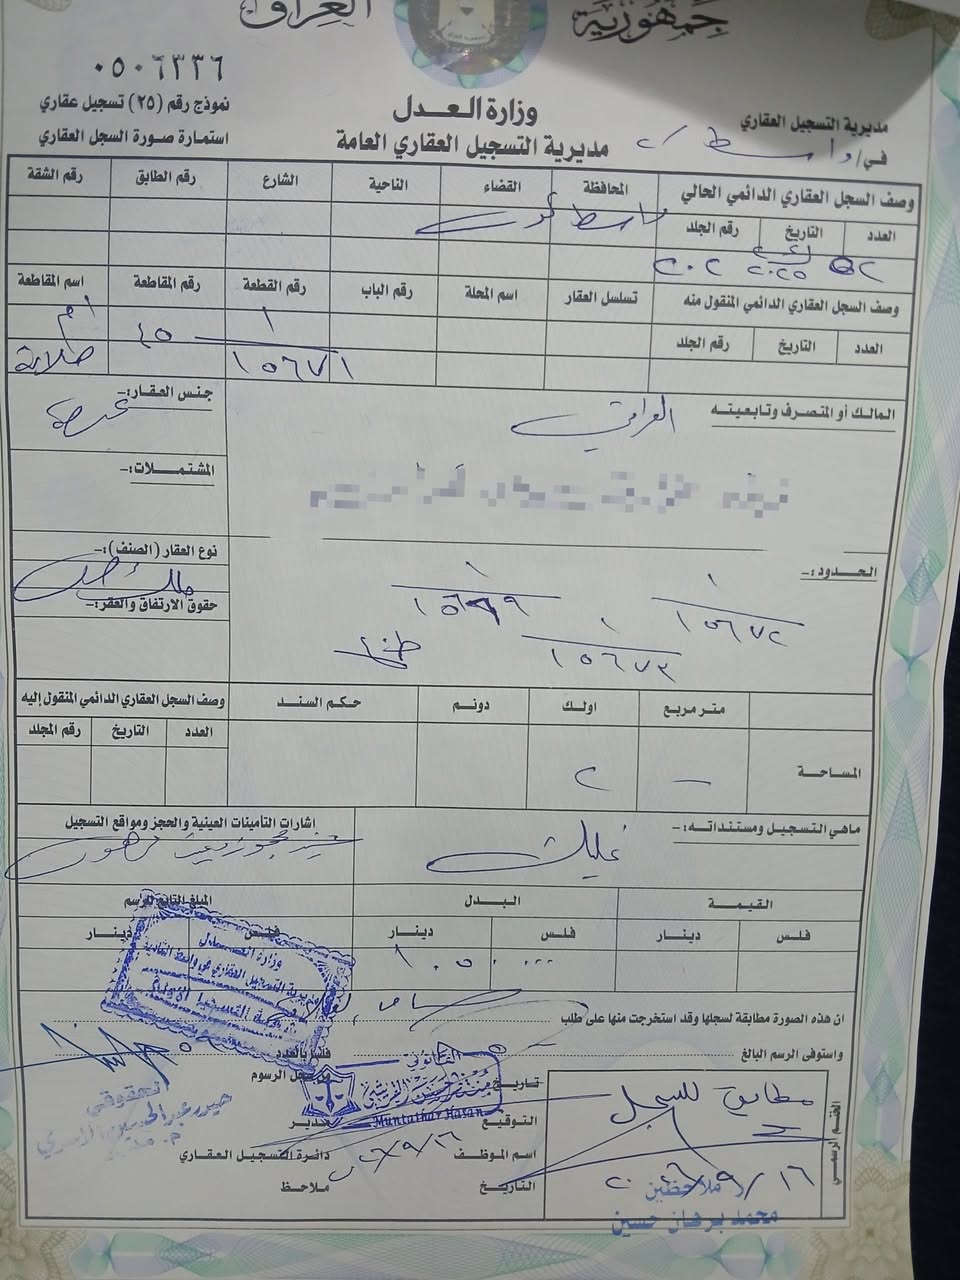 جمهورية العراق
٠٥٠٦٣٣٦
نموذج رقم (٢٥) تسجيل عقاري
استمارة صورة السجل العقاري
وزارة العدل
مديرية التسجيل العقاري العامة
مديرية التسجيل العقاري
في/ واسط
وصف السجل العقاري الدائمي الحالي المحافظة القضاء الناحية الشارع رقم الطابق رقم الشقة
العدد التاريخ رقم الجلد
واسط كوت
٢٠٢٥ ٢٠٢
وصف السجل العقاري الدائمي المنقول منه تسلسل العقار اسم المحلة رقم الباب رقم القطعة رقم المقاطعة اسم المقاطعة
العدد التاريخ رقم الجلد
١ / ١٥٦٧١ ٤٥ ام هلانة
المالك أو المتصرف وتابعيته
العراقي
جنس العقار:-
عرصة
المشتملات:-
نوع العقار (الصنف):-
ملك صرف
حقوق الارتفاق والعقر:-
الحدود:-
١ / ١٥٦٧٢
١ / ١٥٦٦٩
١ / ١٥٦٧٣
متر مربع اولك دونم حكم السند وصف السجل العقاري الدائمي المنقول إليه
العدد التاريخ رقم المجلد
المساحة
— ٢
ماهي التسجيل ومستنداته:-
تمليك
اشارات التأمينات العينية والحجز ومواقع التسجيل
القيمة البدل المبلغ التابع للرسم
فلس دينار فلس دينار فلس دينار
ان هذه الصورة مطابقة لسجلها وقد استخرجت منها على طلب
واستوفى الرسم البالغ
فلسا بالعدد
تاريخ
من سجل الرسوم
التوقيع
مدير
اسم الموظف
دائرة التسجيل العقاري
التاريخ
ملاحظ
الختم الرسمي
مطابق للسجل
٢٠٢٦/٩/١٦
ر. ملاحظين
محمد برهان حسين
وزارة العدل
مديرية التسجيل العقاري في واسط
القانوني
Muntathar Hasan
الحقوقي